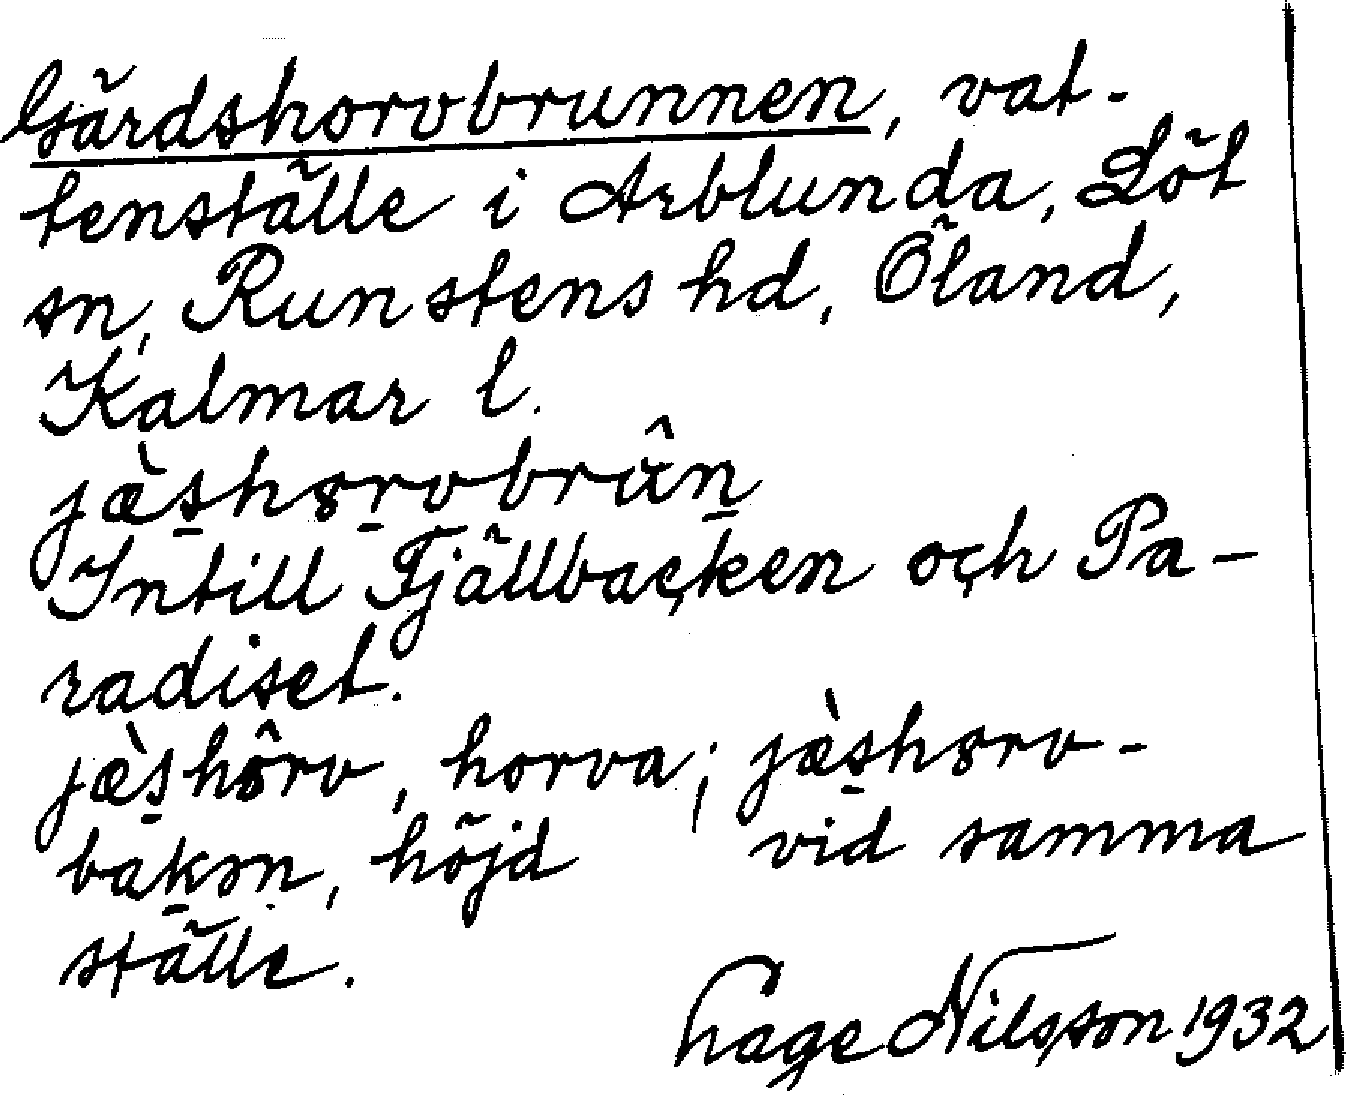 Gärdshorvbrunnen, vat-
tenställe i Arblunda, Löt
sn, Runstens hd, Öland,
Kalmar l.
jæ̀s̱hɤṟvbrûṉ
Intill Fjällbacken och Pa-
radiset.
jæ̀s̱hɤ̂rv, horva; jæ̀s̱hɤrv-
baḵən, höjd vid samma
ställe.
Hage Nilsson 1932